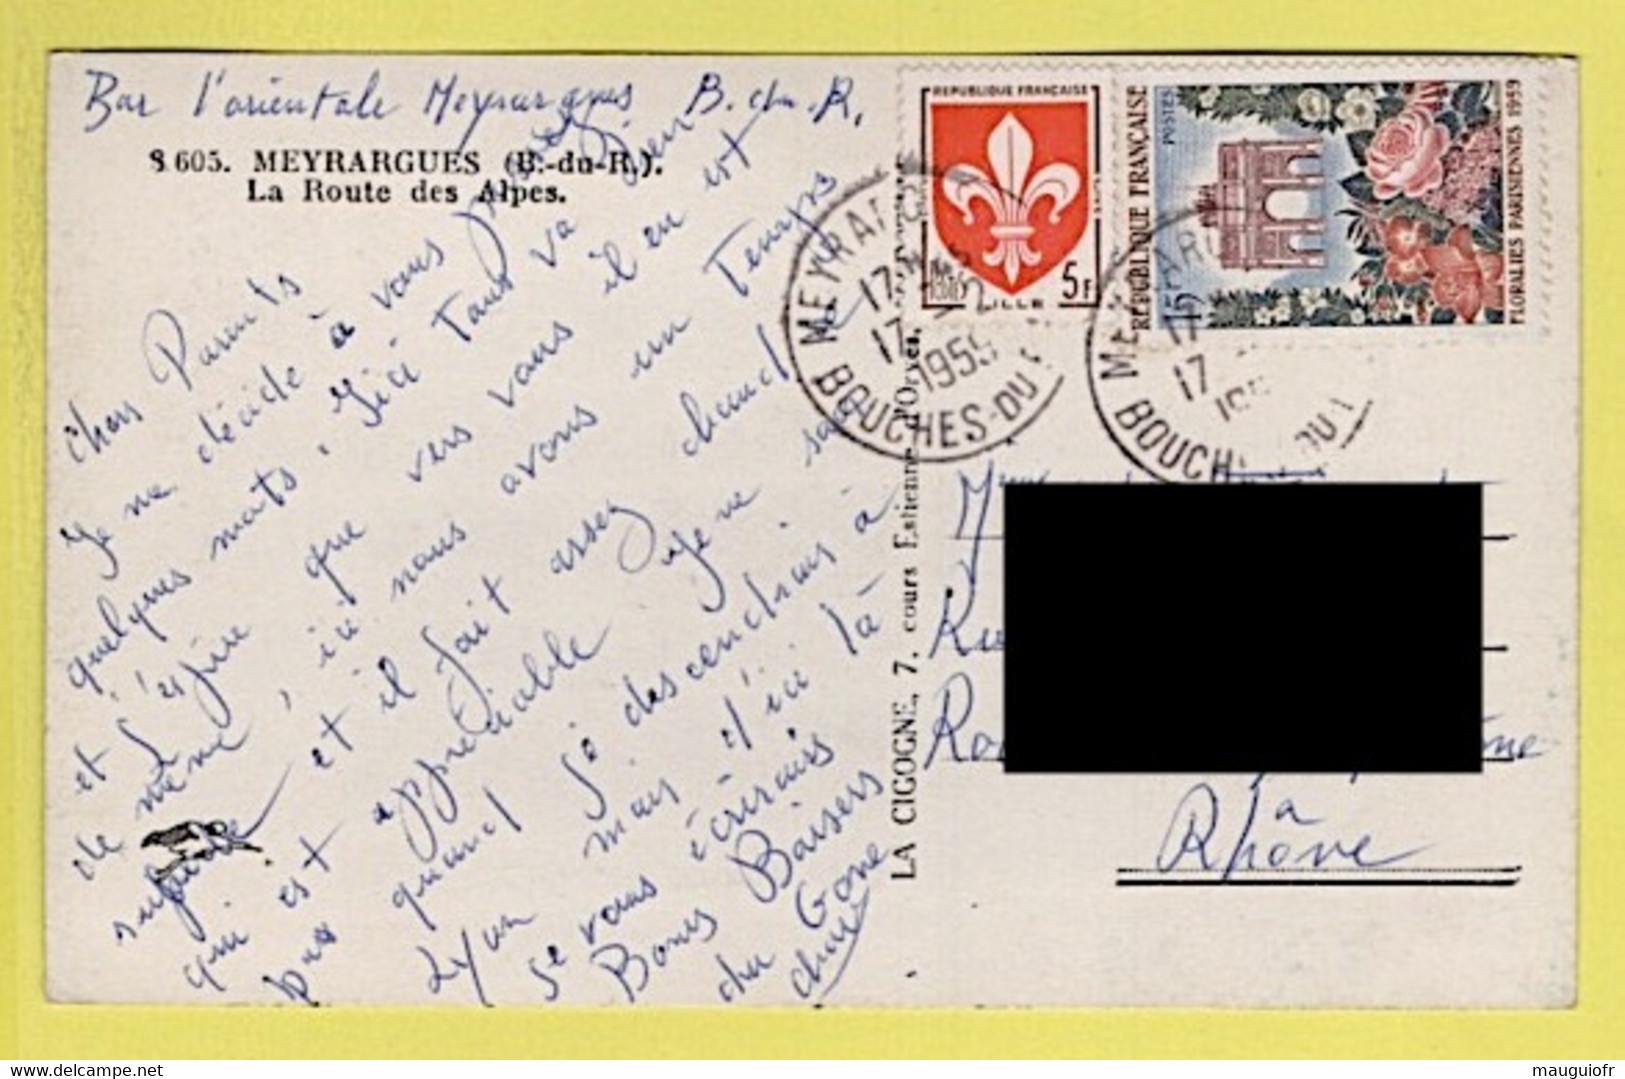 Bar l'orientale Meyrargues B.du.R.
S 605. MEYRARGUES (B.-du-R.).
La Route des Alpes.
chers Parents
Je me décide à vous
quelques mots. Ici tout va bien
et j'espère que vers vous il en est
de même, ici nous avons un Temps
superbe et il fait assez chaud
qui est appréciable Je ne sai
pas quand Je descendrais à
Lyon mais d'ici là
Je vous écrirais
Bons Baisers
du Gone
LA CIGOGNE, 7. cours Estienne d'Orves.
REPUBLIQUE FRANÇAISE
LILLE 5F
REPUBLIQUE FRANÇAISE
POSTES
15F
FLORALIES PARISIENNES 1959
MEYRARGUES
17 -2
1959
BOUCHES-DU-
BOUCH
Mme
Rue
à
Rhône
mauguiofr